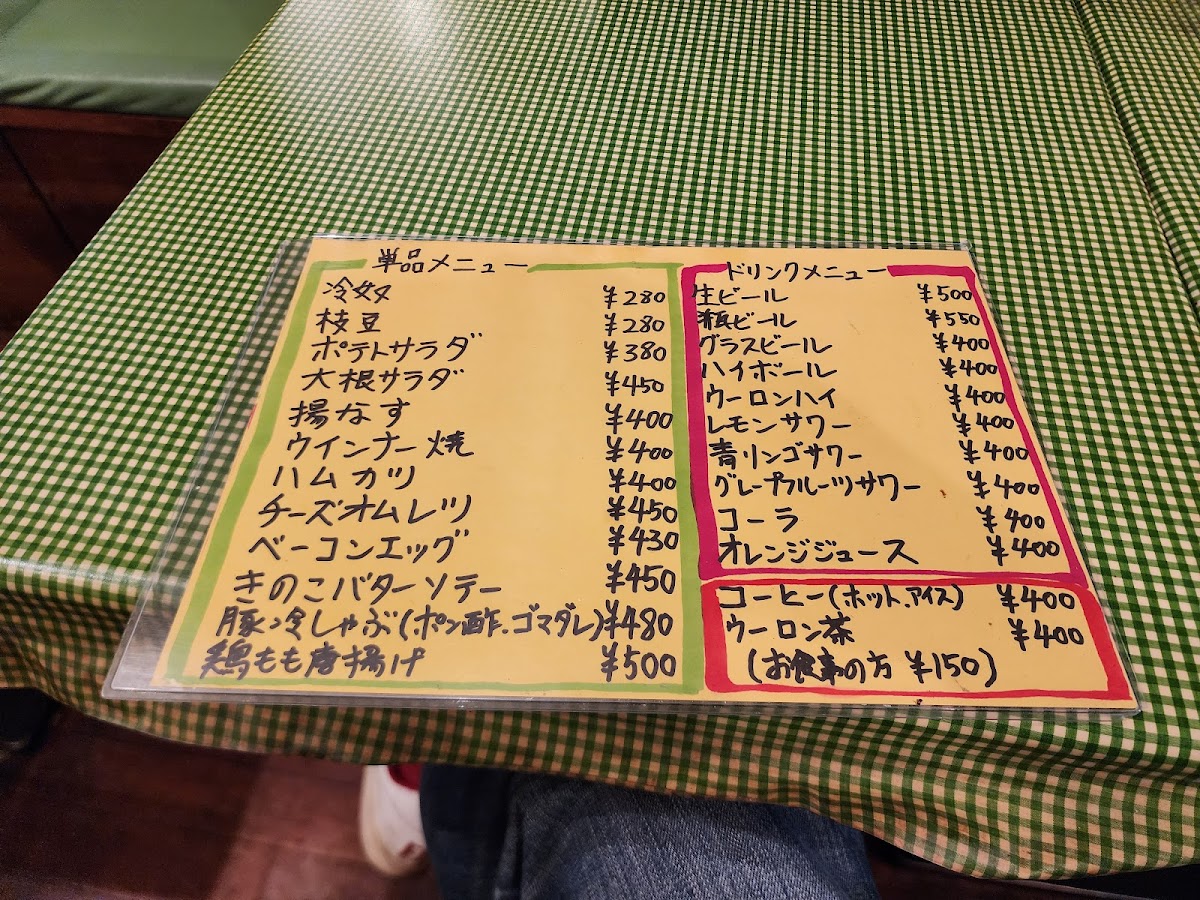 単品メニュー
冷奴 ¥280
枝豆 ¥280
ポテトサラダ ¥380
大根サラダ ¥450
揚なす ¥400
ウインナー焼 ¥400
ハムカツ ¥400
チーズオムレツ ¥450
ベーコンエッグ ¥430
きのこバターソテー ¥450
豚冷しゃぶ(ポン酢.ゴマダレ) ¥480
鶏もも唐揚げ ¥500
ドリンクメニュー
生ビール ¥500
瓶ビール ¥550
グラスビール ¥400
ハイボール ¥400
ウーロンハイ ¥400
レモンサワー ¥400
青リンゴサワー ¥400
グレープフルーツサワー ¥400
コーラ ¥400
オレンジジュース ¥400
コーヒー(ホット.アイス) ¥400
ウーロン茶 ¥400
(お食事の方 ¥150)